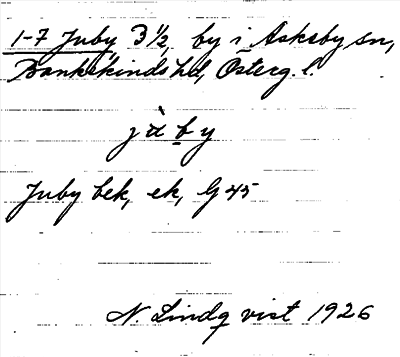 1-7 Juby 3 1/2, by i Askeby sn,
Bankekinds hd, Österg. l.
jʉ̀by
Juby bek, ek, G 45
N. Lindqvist 1926